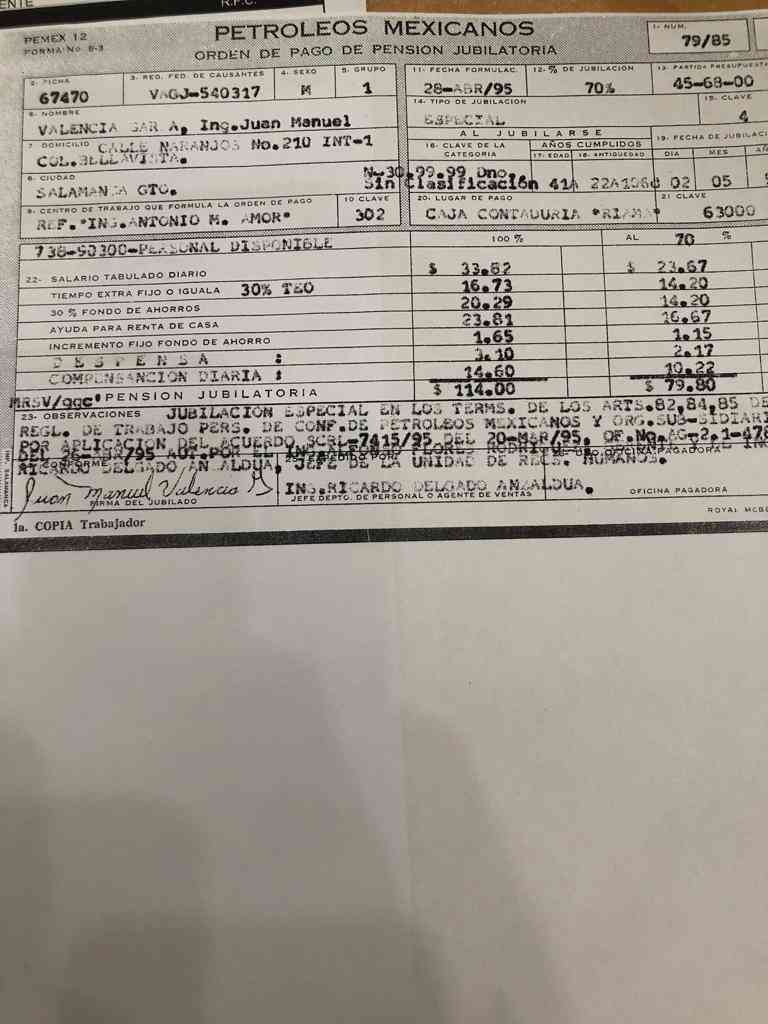 ENTE
R.F.C.
PEMEX 12
FORMA No 6-3
PETROLEOS MEXICANOS
ORDEN DE PAGO DE PENSION JUBILATORIA
1- NUM.
79/85
2- FICHA
67470
3- REG. FED. DE CAUSANTES
VAGJ-540317
4- SEXO
M
5- GRUPO
1
11- FECHA FORMULAC.
28-ABR/95
12-% DE JUBILACION
70%
13- PARTIDA PRESUPUESTA
45-68-00
6- NOMBRE
VALENCIA GAR IA, Ing.Juan Manuel
14- TIPO DE JUBILACION
ESPECIAL
15- CLAVE
4
7 DOMICILIO CALLE NARANJOS No.210 INT-1
COL.BELLAVISTA.
AL JUBILARSE
16- CLAVE DE LA CATEGORIA
AÑOS CUMPLIDOS
17- EDAD 18- ANTIGUEDAD
19- FECHA DE JUBILACI
DIA MES AÑ
8- CIUDAD
SALAMANCA GTO.
N-30.99.99 Dno.
Sin Clasificación 41A 22A106d 02 05 9
9- CENTRO DE TRABAJO QUE FORMULA LA ORDEN DE PAGO
REF. "ING.ANTONIO M. AMOR"
10 CLAVE
302
20- LUGAR DE PAGO
CAJA CONTADURIA "RIAMA"
21 CLAVE
63000
738-90300-PERSONAL DISPONIBLE
100 %
AL 70 %
22- SALARIO TABULADO DIARIO $ 33.82 $ 23.67
TIEMPO EXTRA FIJO O IGUALA 30% TEO 16.73 14.20
30 % FONDO DE AHORROS 20.29 14.20
AYUDA PARA RENTA DE CASA 23.81 16.67
INCREMENTO FIJO FONDO DE AHORRO 1.65 1.15
D E S P E N S A : 3.10 2.17
COMPENSANCION DIARIA : 14.60 10.22
MRSV/agc' PENSION JUBILATORIA $ 114.00 $ 79.80
23- OBSERVACIONES JUBILACION ESPECIAL EN LOS TERMS. DE LOS ARTS.82,84,85 DE
REGL. DE TRABAJO PERS. DE CONF.DE PETROLEOS MEXICANOS Y ORG.SUB-SIDIARI
POR APLICACION DEL ACUERDO SCRL-7415/95 DEL 20-MAR/95, OF.No.AG-2.1-478
DEL 26-ABR/95 AUT.POR EL
RICARDO DELGADO ANZALDUA, JEFE DE LA UNIDAD DE RECS. HUMANOS.
CONFORME
Juan Manuel Valencia G
FIRMA DEL JUBILADO
ING.RICARDO DELGADO ANZALDUA.
JEFE DEPTO. DE PERSONAL O AGENTE DE VENTAS
OFICINA PAGADORA
1a. COPIA Trabajador